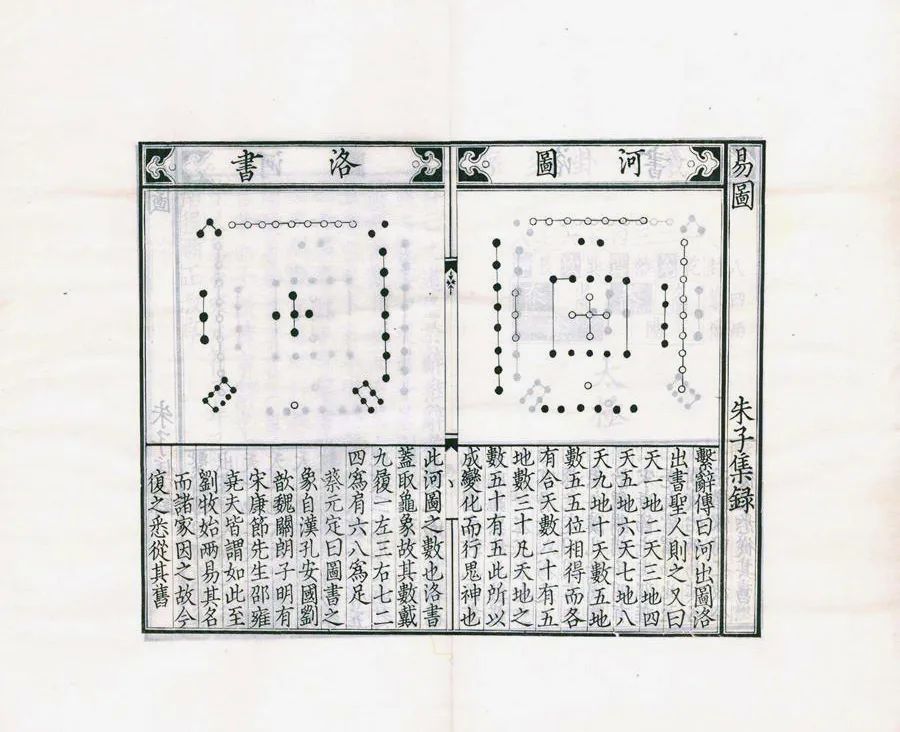 易圖
朱子集録
河圖
繫辭傳曰河出圖洛
出書聖人則之又曰
天一地二天三地四
天五地六天七地八
天九地十天數五地
數五五位相得而各
有合天數二十有五
地數三十凡天地之
數五十有五此所以
成變化而行鬼神也
洛書
此河圖之數也洛書
蓋取龜象故其數戴
九履一左三右七二
四爲肩六八爲足
蔡元定曰圖書之
象自漢孔安國劉
歆魏關朗子明有
宋康節先生邵雍
堯夫皆謂如此至
劉牧始两易其名
而諸家因之故今
復之悉從其舊